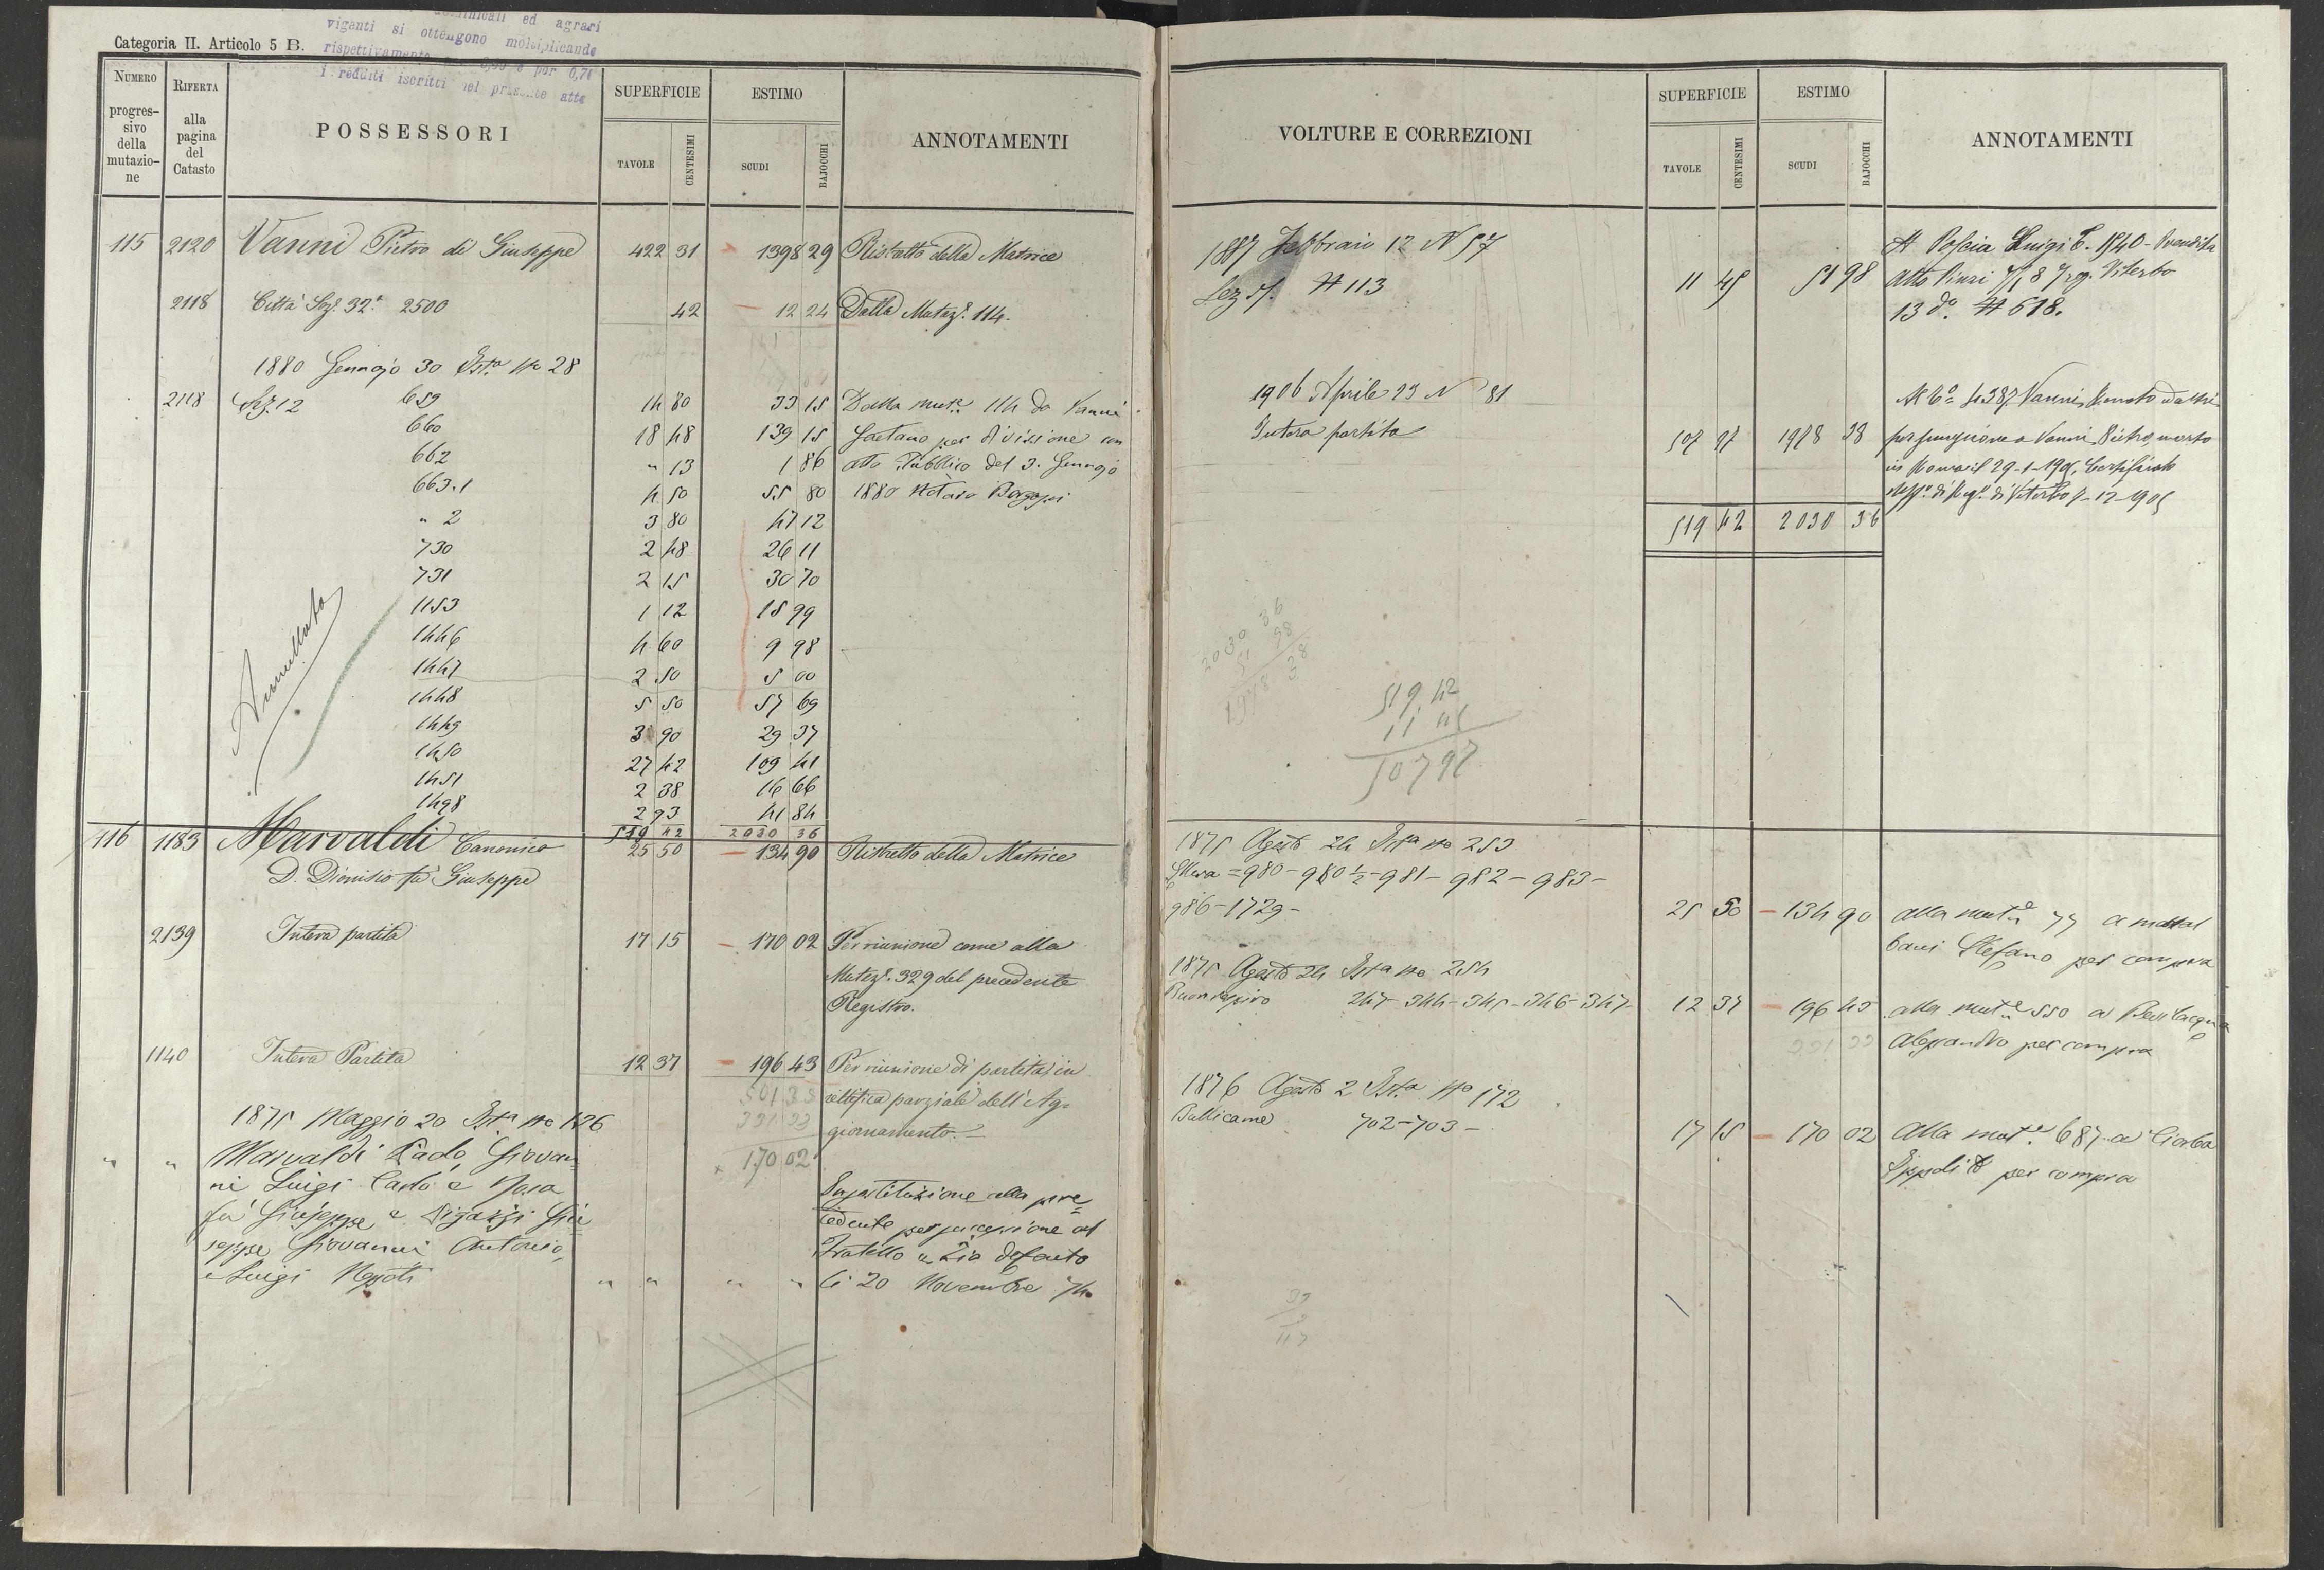 Categoria II. Articolo 5 B.
ed agrari
viganti si ottengono moltiplicando
rispettivamente per 0,74
i redditi iscritti nel presente atto
NUMERO progressivo della mutazione
RIFERTA alla pagina del Catasto
POSSESSORI
SUPERFICIE
TAVOLE CENTESIMI
ESTIMO
SCUDI BAJOCCHI
ANNOTAMENTI
115 2120 Vanni Pietro di Giuseppe 422 31 1398 29 Ristretto della Matrice
2118 Città Sez. 32ª 2500 42 12 24 Dalla Mutez. 114.
1880 Gennajo 30 Ista No 28
2118 Sez. 12 659 14 80 33 15 Dalla mut. 114 da Vanni
660 18 48 139 15 Gaetano per divisione con
662 " 13 1 86 atto Pubblico del 3. Gennajo
663.1 4 50 55 80 1880 Notaro
" 2 3 80 47 12
730 2 48 26 11
731 2 15 30 70
1153 1 12 18 99
1446 4 60 9 98
1447 2 50 5 00
1448 5 50 57 69
1449 3 90 29 37
1450 27 42 109 41
1451 2 38 16 66
1498 2 93 41 84
519 42 2030 36
Annullato
116 1183 Marvaldi Canonico 25 50 134 90 Ristretto della Matrice
D. Dionisio fu Giuseppe
2139 Intera partita 17 15 170 02 Per riunione come alla
Mutez. 329 del precedente
Registro.
1140 Intera Partita 12 37 196 43 Per riunione di partita in
501 35 rettifica parziale dell'Ag-
331 33 giornamento.
170 02
1875 Maggio 20 Ista No 126
" " Marvaldi Paolo, Giovan
ni Luigi Carlo e Rosa
fu Giuseppe e Gia
seppe Giovanni Antonio,
e Luigi Nepoti " " " "
Sostituzione alla pre
cedente per successione al
Fratello e Zio defonto
li 20 Novembre 74
VOLTURE E CORREZIONI
SUPERFICIE
TAVOLE CENTESIMI
ESTIMO
SCUDI BAJOCCHI
ANNOTAMENTI
1887 Febbraio 12 N 57
Sez. 5. # 113 11 45 51 98
A Poscia Luigi C. 1840 - Pvendita
Atto Pinzi 7/1 87 reg. Viterbo
13 do. # 618.
1906 Aprile 23 N 81
Intera partita 507 97 1978 38
Al Co 4387 Vanni
per successione a Vanni Pietro, morto
in 29-1-190
di Viterbo 7-12-1905
519 42 2030 36
2030 36
51 98
1978 38
519 42
11 45
507 97
1875 Agosto 24 Ista No 253
= 980 - 980 ½ - 981 - 982 - 983 -
986 - 1729 - 25 50 134 90 alla mut. 77 a
Stefano per compra
1875 Agosto 24 Ista No 254
Buonrespiro 247 - 344 - 345 - 346 - 347 - 12 37 196 43 alla mut. 550 a Bevilacqua
331 33 Alessandro per compra
1876 Agosto 2 Ista No 172
Bullicame 702 - 703 - 17 15 170 02 Alla mut. 687 a Ciorba
Ippolito per compra